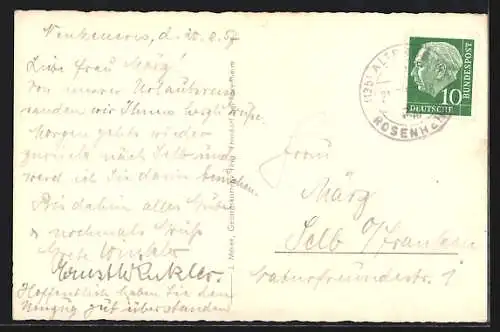 d. 20.8.57
Liebe Frau März!
Von unserer Urlaubsreise
senden wir Ihnen herzl. Grüße.
Morgen gehts wieder
zurück nach Selb und
werd ich Sie dann besuchen.
Bis dahin alles Gute
u. nochmals Grüße
Grete Winkler
Ernst Winkler.
Hoffentlich haben Sie den
Umzug gut überstanden
Frau
März
Selb o/Franken
Naturfreundestr. 1
ROSENHEIM
10
DEUTSCHE
BUNDESPOST